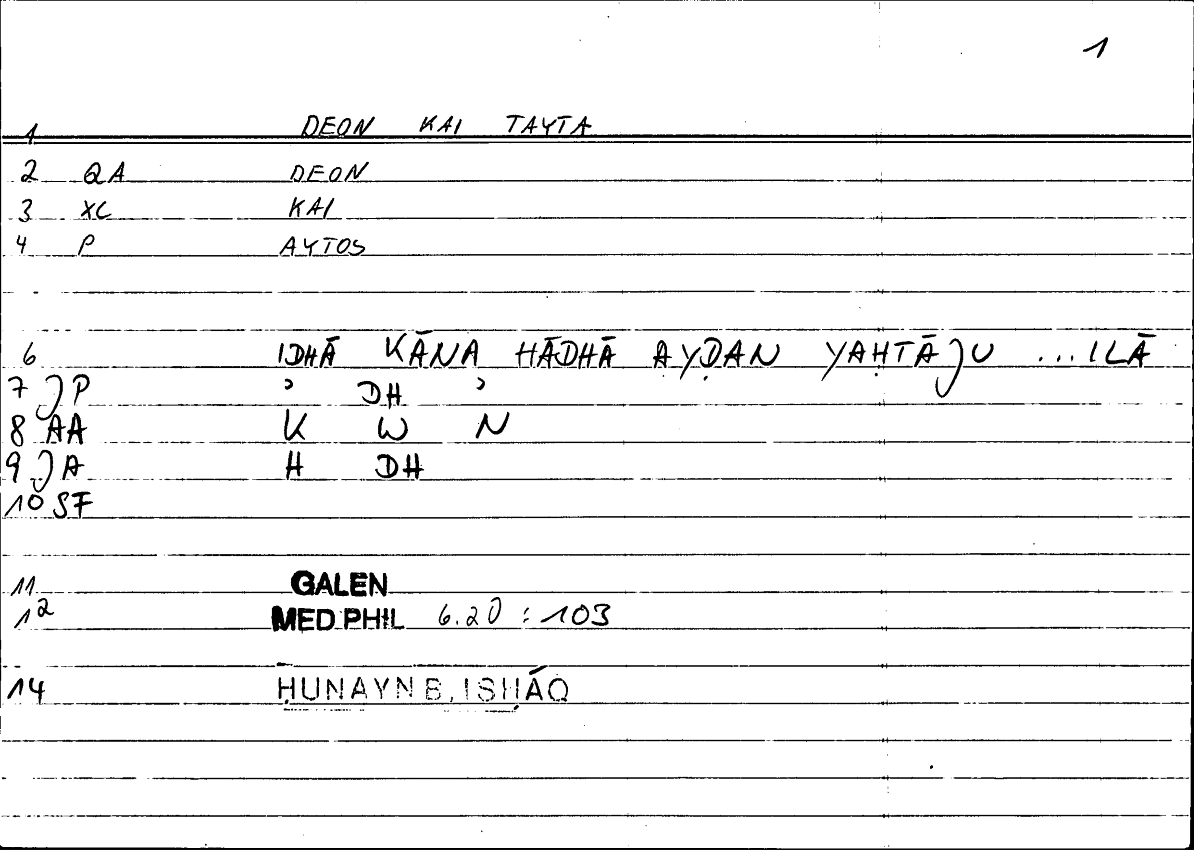 1
1 DEON KAI TAYTA
2 QA DEON
3 XC KAI
4 P AYTOS
6 IDHĀ KĀNA HĀDHĀ AYḌAN YAḤTĀJU ...ILĀ
7 JP ʾ DH ʾ
8 AA K W N
9 JA H DH
10 SF
11 GALEN
12 MED PHIL 6.20 : 103
14 ḤUNAYN B. ISḤĀQ